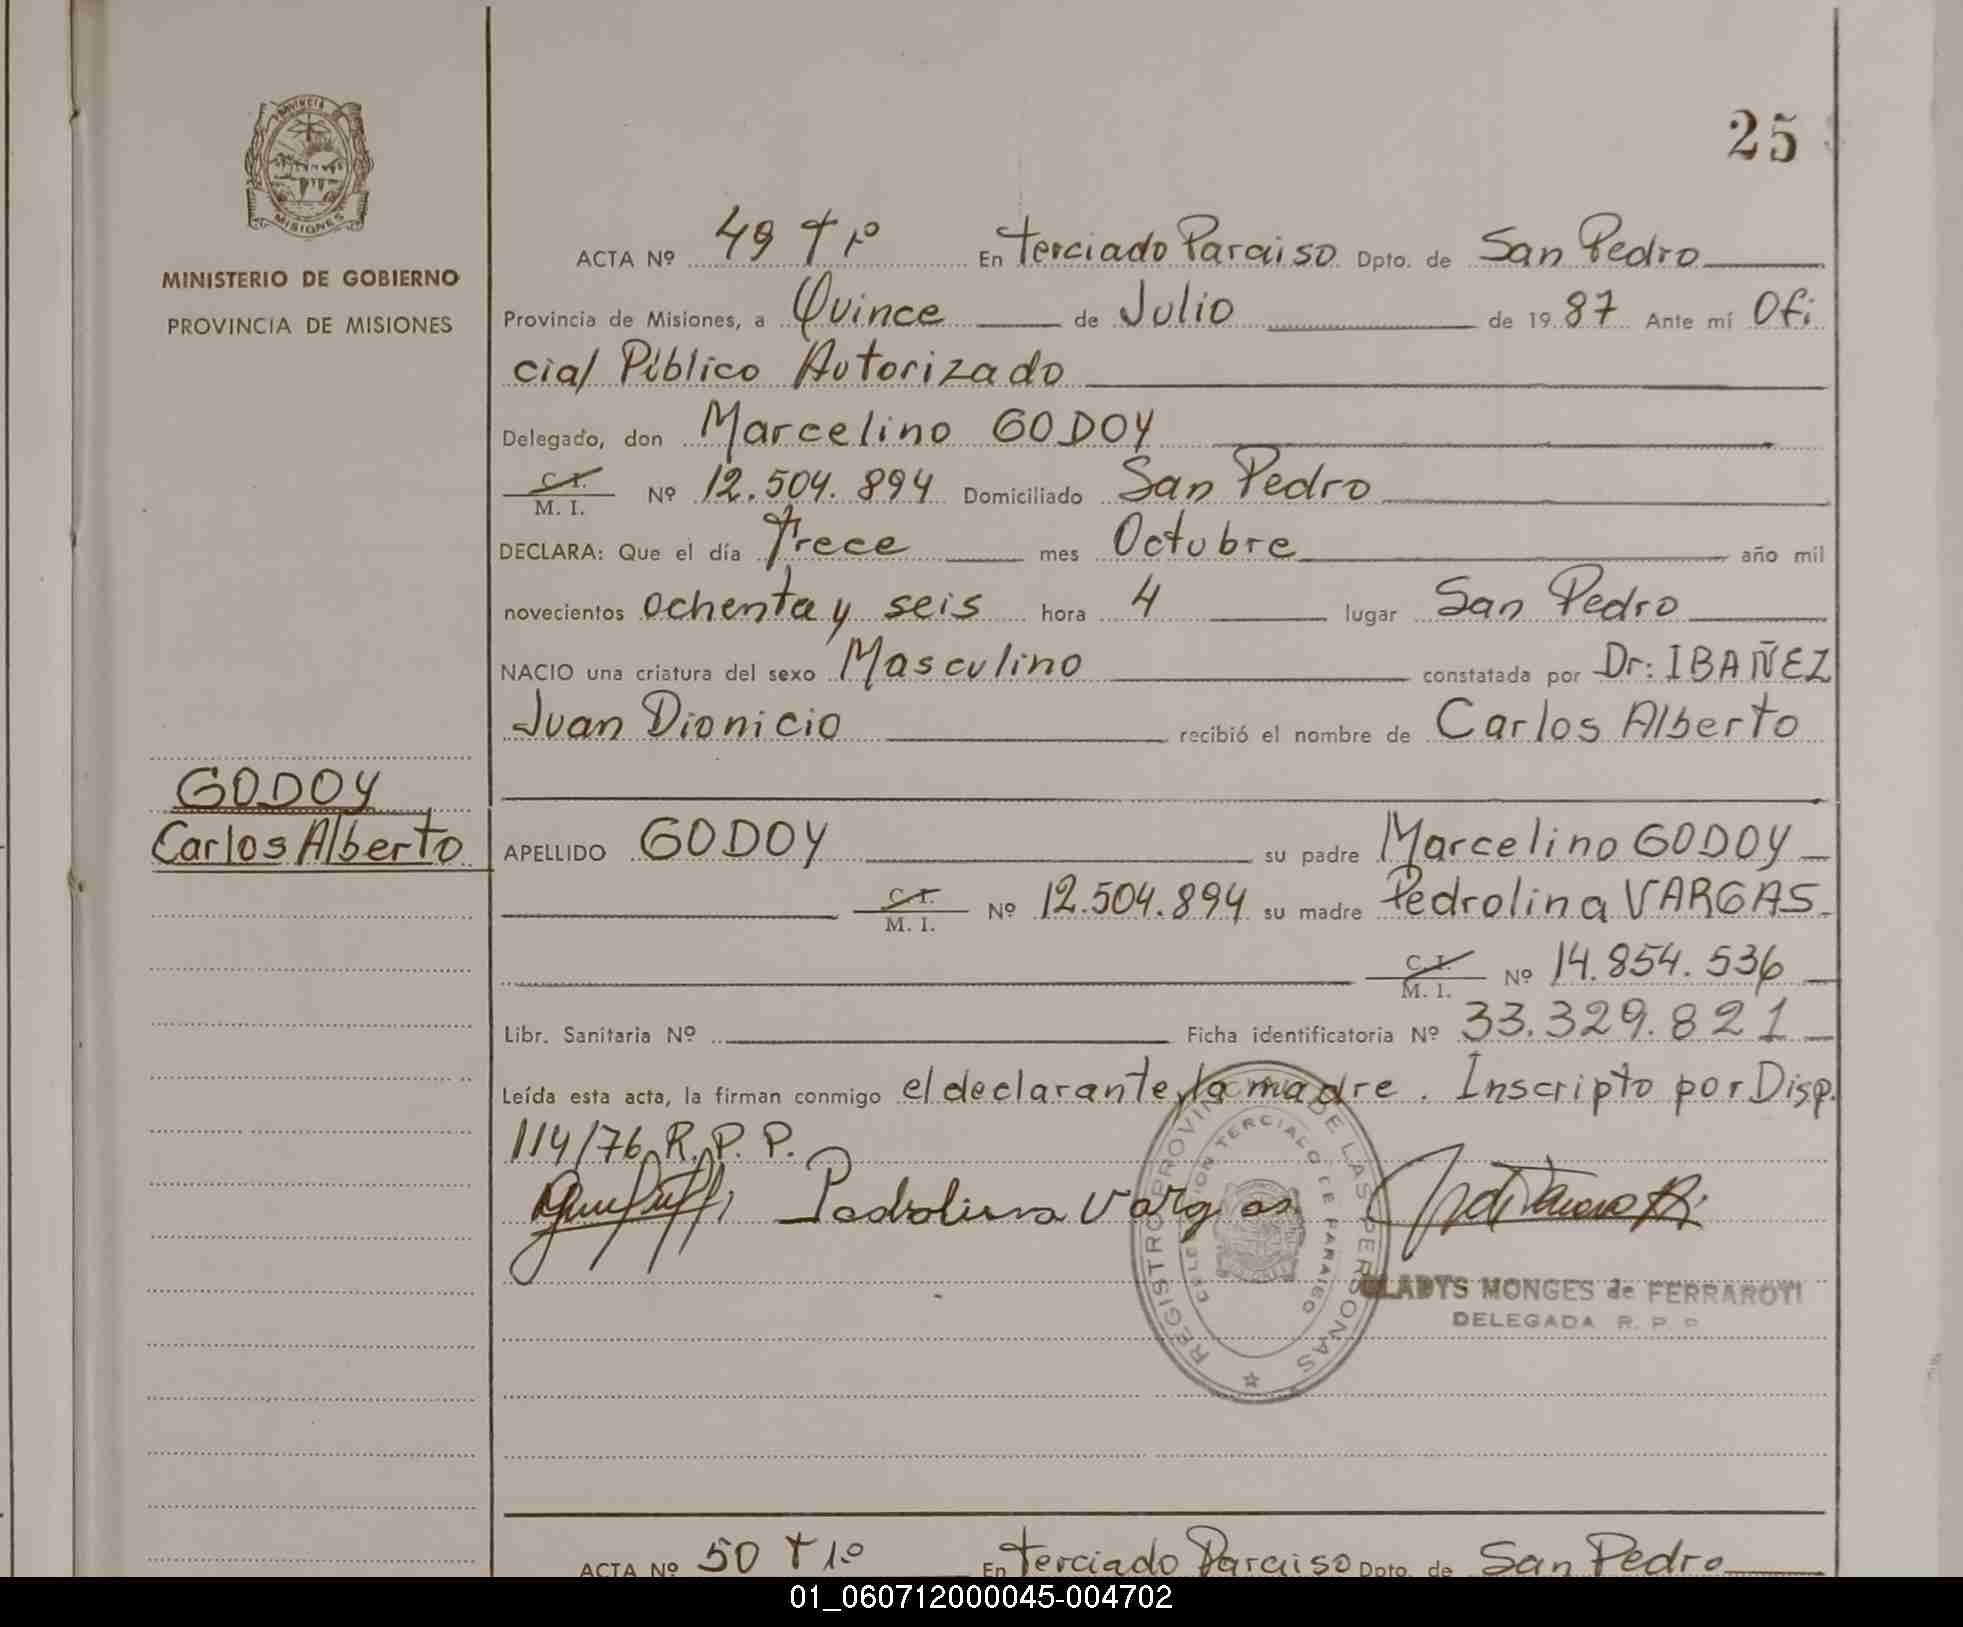 25
PROVINCIA
MISIONES
MINISTERIO DE GOBIERNO
PROVINCIA DE MISIONES
ACTA Nº 49 T 1º En Terciado Paraiso Dpto. de San Pedro
Provincia de Misiones, a Quince de Julio de 1987 Ante mí Ofi
cial Público Autorizado
Delegado, don Marcelino GODOY
C. I. M. I. Nº 12.504.894 Domiciliado San Pedro
DECLARA: Que el día Trece mes Octubre año mil
novecientos ochenta y seis hora 4 lugar San Pedro
NACIO una criatura del sexo Masculino constatada por Dr: IBAÑEZ
Juan Dionicio recibió el nombre de Carlos Alberto
GODOY
Carlos Alberto
APELLIDO GODOY su padre Marcelino GODOY
C. I. M. I. Nº 12.504.894 su madre Pedrolina VARGAS
C. I. M. I. Nº 14.854.536
Libr. Sanitaria Nº Ficha identificatoria Nº 33.329.821
Leída esta acta, la firman conmigo el declarante, la madre. Inscripto por Disp.
114/76 R.P.P.
Pedrolina Vargas
REGISTRO PROVINCIAL DE LAS PERSONAS
DELEGACION TERCIADO DE PARAISO
GLADYS MONGES de FERRAROTI
DELEGADA R. P. P.
ACTA Nº 50 T 1º En Terciado Paraiso Dpto. de San Pedro
01_060712000045-004702